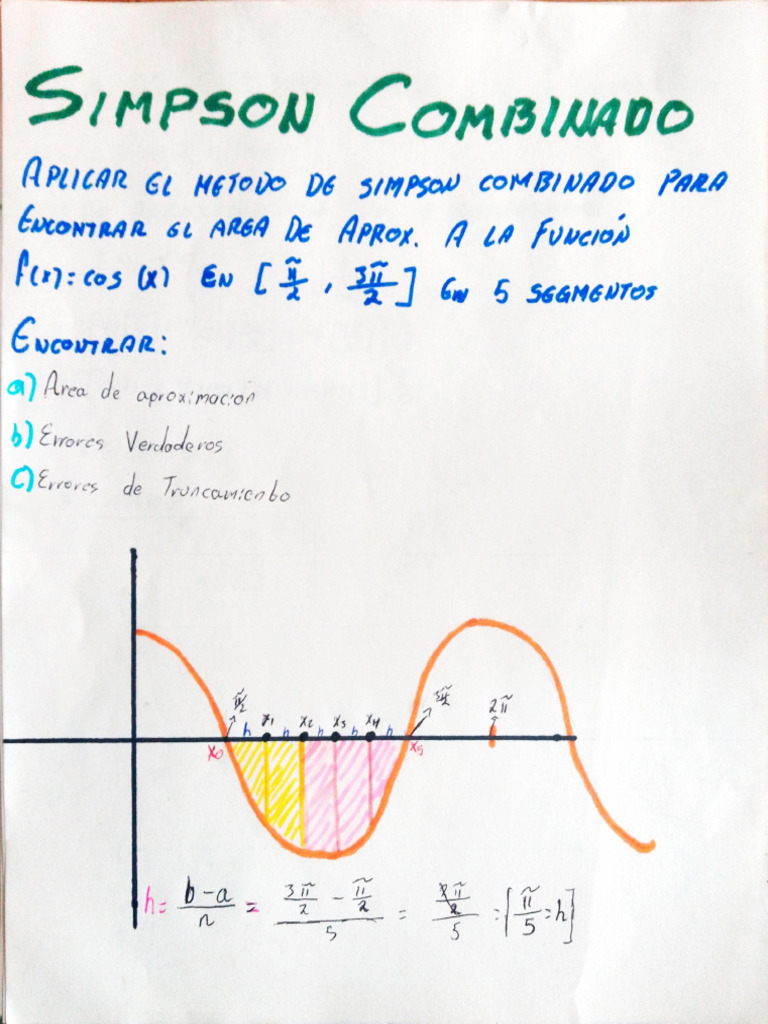 SIMPSON COMBINADO
APLICAR EL METODO DE SIMPSON COMBINADO PARA
ENCONTRAR EL AREA DE APROX. A LA FUNCIÓN
f(x): cos (x) EN [π/2 , 3π/2] EN 5 SEGMENTOS
ENCONTRAR:
a) Area de aproximación
b) Errores Verdaderos
c) Errores de Truncamiento
π/2 x1 x2 x3 x4 3π/2 2π
h h h h h
x0 x5
h = b-a/n = 3π/2 - π/2 / 5 = 2π/2 / 5 = [π/5 = h]